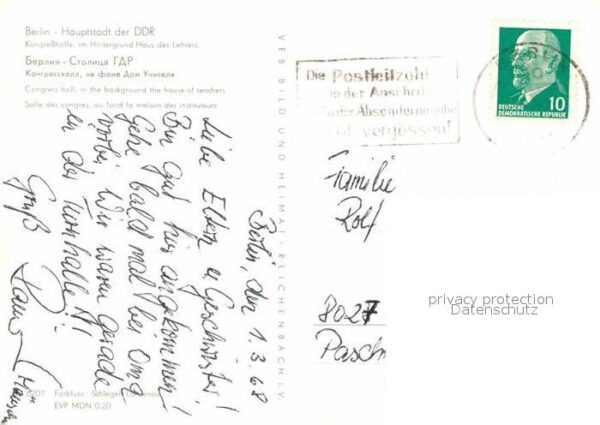 Berlin - Hauptstadt der DDR
Kongreßhalle, im Hintergrund Haus des Lehrers
Берлин - Столица ГДР
Конгрессхалл, на фоне Дом Учителя
Congress hall, in the background the house of teachers
Salle des congres, au fond la maison des instituteurs
VEB BILD UND HEIMAT · REICHENBACH i. V.
Berlin, den 1.3.68
Liebe Eltern u. Geschwister!
Bin gut hier angekommen!
Gehe bald mal bei Oma
vorbei. Wir waren gerade
in der Turnhalle!!
Gruß
Die Postleitzahl
in der Anschrift
der Absenderangabe
nicht vergessen!
BERLIN
10
DEUTSCHE
DEMOKRATISCHE REPUBLIK
Familie
Rolf
8027
privacy protection
Datenschutz
Farbfoto: Schlegel,
EVP MDN 0,20